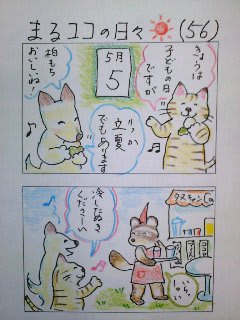 まるココの日々☀(56)
きょうは
子どもの日
ですが
5月
5
柏もち
おいしいね!
りっか
立夏
でもあります
冷したぬき
くださーい
いない